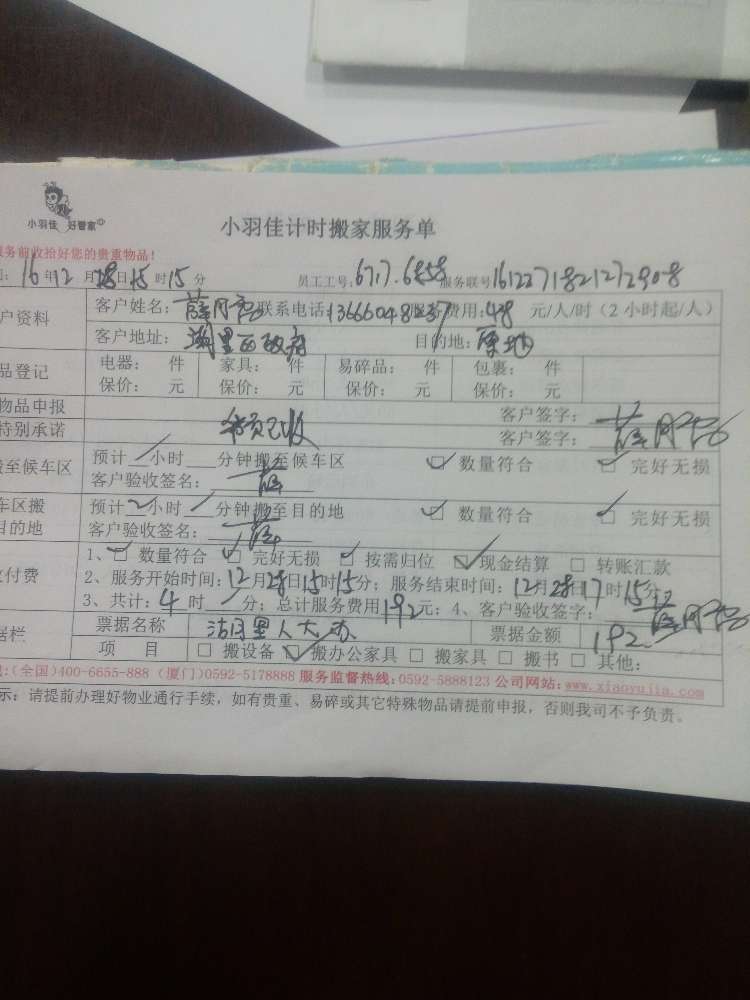 小羽佳 好管家
小羽佳计时搬家服务单
务前收拾好您的贵重物品!
16年12月28日15时15分 员工工号:6717.6858 服务联号
户资料 客户姓名: 薛 联系电话: 费用:48 元/人/时(2小时起/人)
客户地址: 湖里区政府 目的地: 原地
品登记 电器: 件 家具: 件 易碎品: 件 包裹: 件
保价: 元 保价: 元 保价: 元 保价: 元
物品申报 客户签字: 薛
特别承诺 已收 客户签字:
搬至候车区 预计 小时 分钟搬至候车区 数量符合 完好无损
客户验收签名: 薛
车区搬 预计 2 小时 分钟搬至目的地 数量符合 完好无损
目的地 客户验收签名: 薛
付费 1、 数量符合 完好无损 按需归位 现金结算 转账汇款
2、服务开始时间:12月28日15时15分; 服务结束时间:12月28日17时15分
3、共计: 4 时 分; 总计服务费用192元; 4、客户验收签字: 薛
据栏 票据名称 湖里人大办 票据金额 192
项 目 搬设备 搬办公家具 搬家具 搬书 其他:
:(全国)400-6655-888 (厦门)0592-5178888 服务监督热线:0592-5888123 公司网站:www.xiaoyujia.com
示: 请提前办理好物业通行手续, 如有贵重、易碎或其它特殊物品请提前申报, 否则我司不予负责。